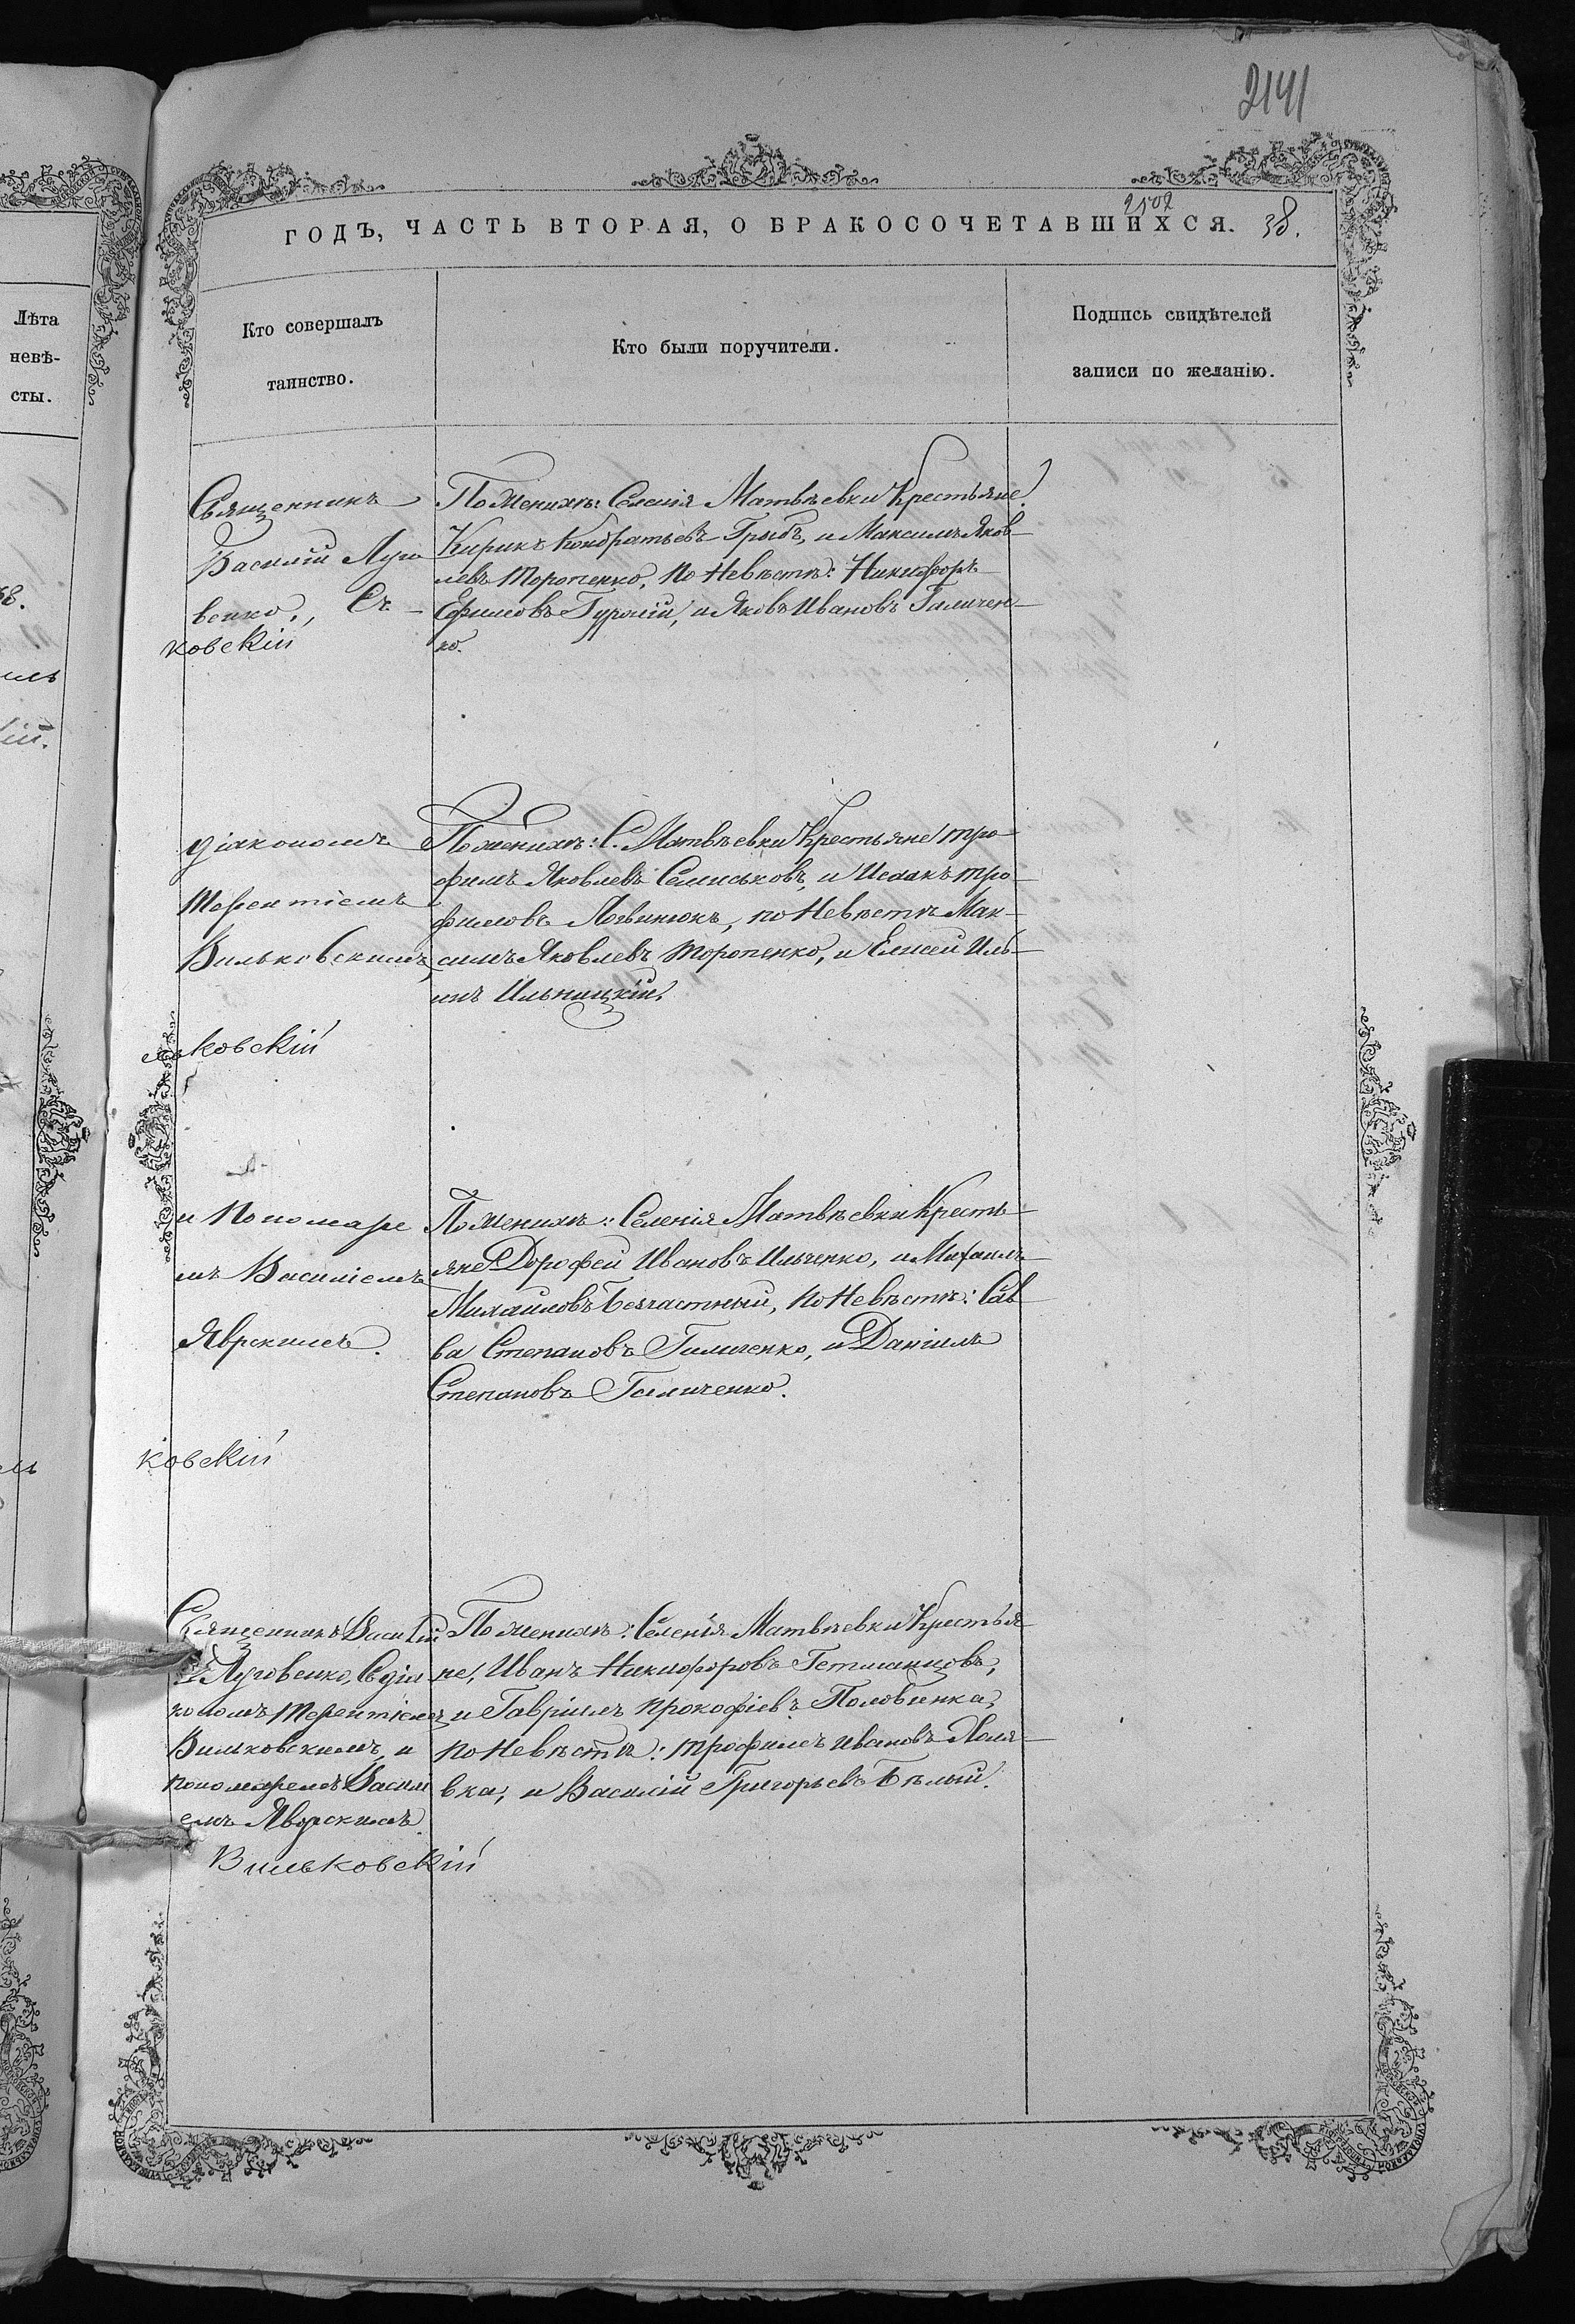 2141
2502
ГОДЪ, ЧАСТЬ ВТОРАЯ, О БРАКОСОЧЕТАВШИХСЯ. 38.
Лѣта
невѣ-
сты.
Кто совершалъ
таинство.
Кто были поручители.
Подпись свидѣтелей
записи по желанію.
Священникъ
Василій Луго
венко, Съ
ковскій
По Женихѣ: Селенія Матвѣевки Крестьяне
Кирикъ Кондратьевъ Грыбъ, и Максимъ Яков-
левъ Торопенко, по Невѣстѣ: Никифоръ
Ефимовъ Гурскій, и Яковъ Ивановъ Галичен-
ко.
діакономъ
Терентіемъ
Вильковскимъ,
ьковскій
По женихѣ: С. Матвѣевки Крестьяне Тро-
фимъ Яковлевъ Семиськовъ, и Исаакъ Тро-
фимовъ Логвинюкъ, по Невѣстѣ Мак-
симъ Яковлевъ Торопенко, и Елисей Иль-
инъ Ильницкій.
и Пономаре
мъ Василіемъ
Яврскимъ.
ковскій
По Женихѣ: Селенія Матвѣевки Кресть-
яне Дорофей Ивановъ Ильченко, и Михаилъ
Михаиловъ Безчастный, по Невѣстѣ: Сав
ва Степановъ Галиченко, и Даніилъ
Степановъ Галиченко.
Священникъ Василій
Луговенко, Съ діа
кономъ Терентіемъ
Вильковскимъ, и
пономаремъ Васил
емъ Яворскимъ.
Вильковскій
По женихѣ: Селенія Матвѣевки Крестья
не, Иванъ Никифоровъ Гетманцовъ,
и Гавріилъ Прокофіевъ Половинка,
по Невѣстѣ: Трофимъ Ивановъ Поля-
вка, и Василій Григорьевъ Бѣлый.